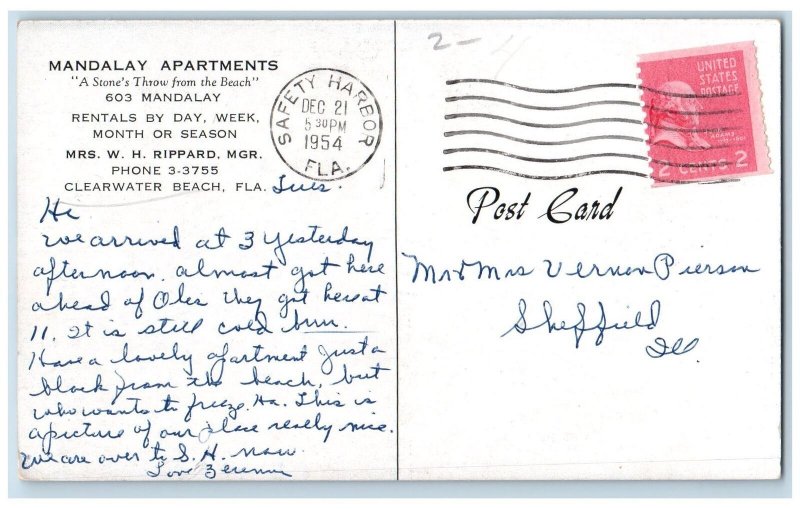 2-
MANDALAY APARTMENTS
"A Stone's Throw from the Beach"
603 MANDALAY
RENTALS BY DAY, WEEK,
MONTH OR SEASON
MRS. W. H. RIPPARD, MGR.
PHONE 3-3755
CLEARWATER BEACH, FLA.
SAFETY HARBOR
DEC 21
5 30 PM
1954
FLA.
UNITED
STATES
POSTAGE
ADAMS
2 CENTS 2
Post Card
Tues.
Hi
We arrived at 3 yesterday
afternoon. almost got here
ahead of Oles they got here at
11. It is still cold brrr.
Have a lovely apartment just a
block from the beach, but
who wants to freeze. Ha. This is
a picture of our place really nice.
We are over to S. H. now.
Love
Mr & Mrs Vernon Pierson
Sheffield
Ill.